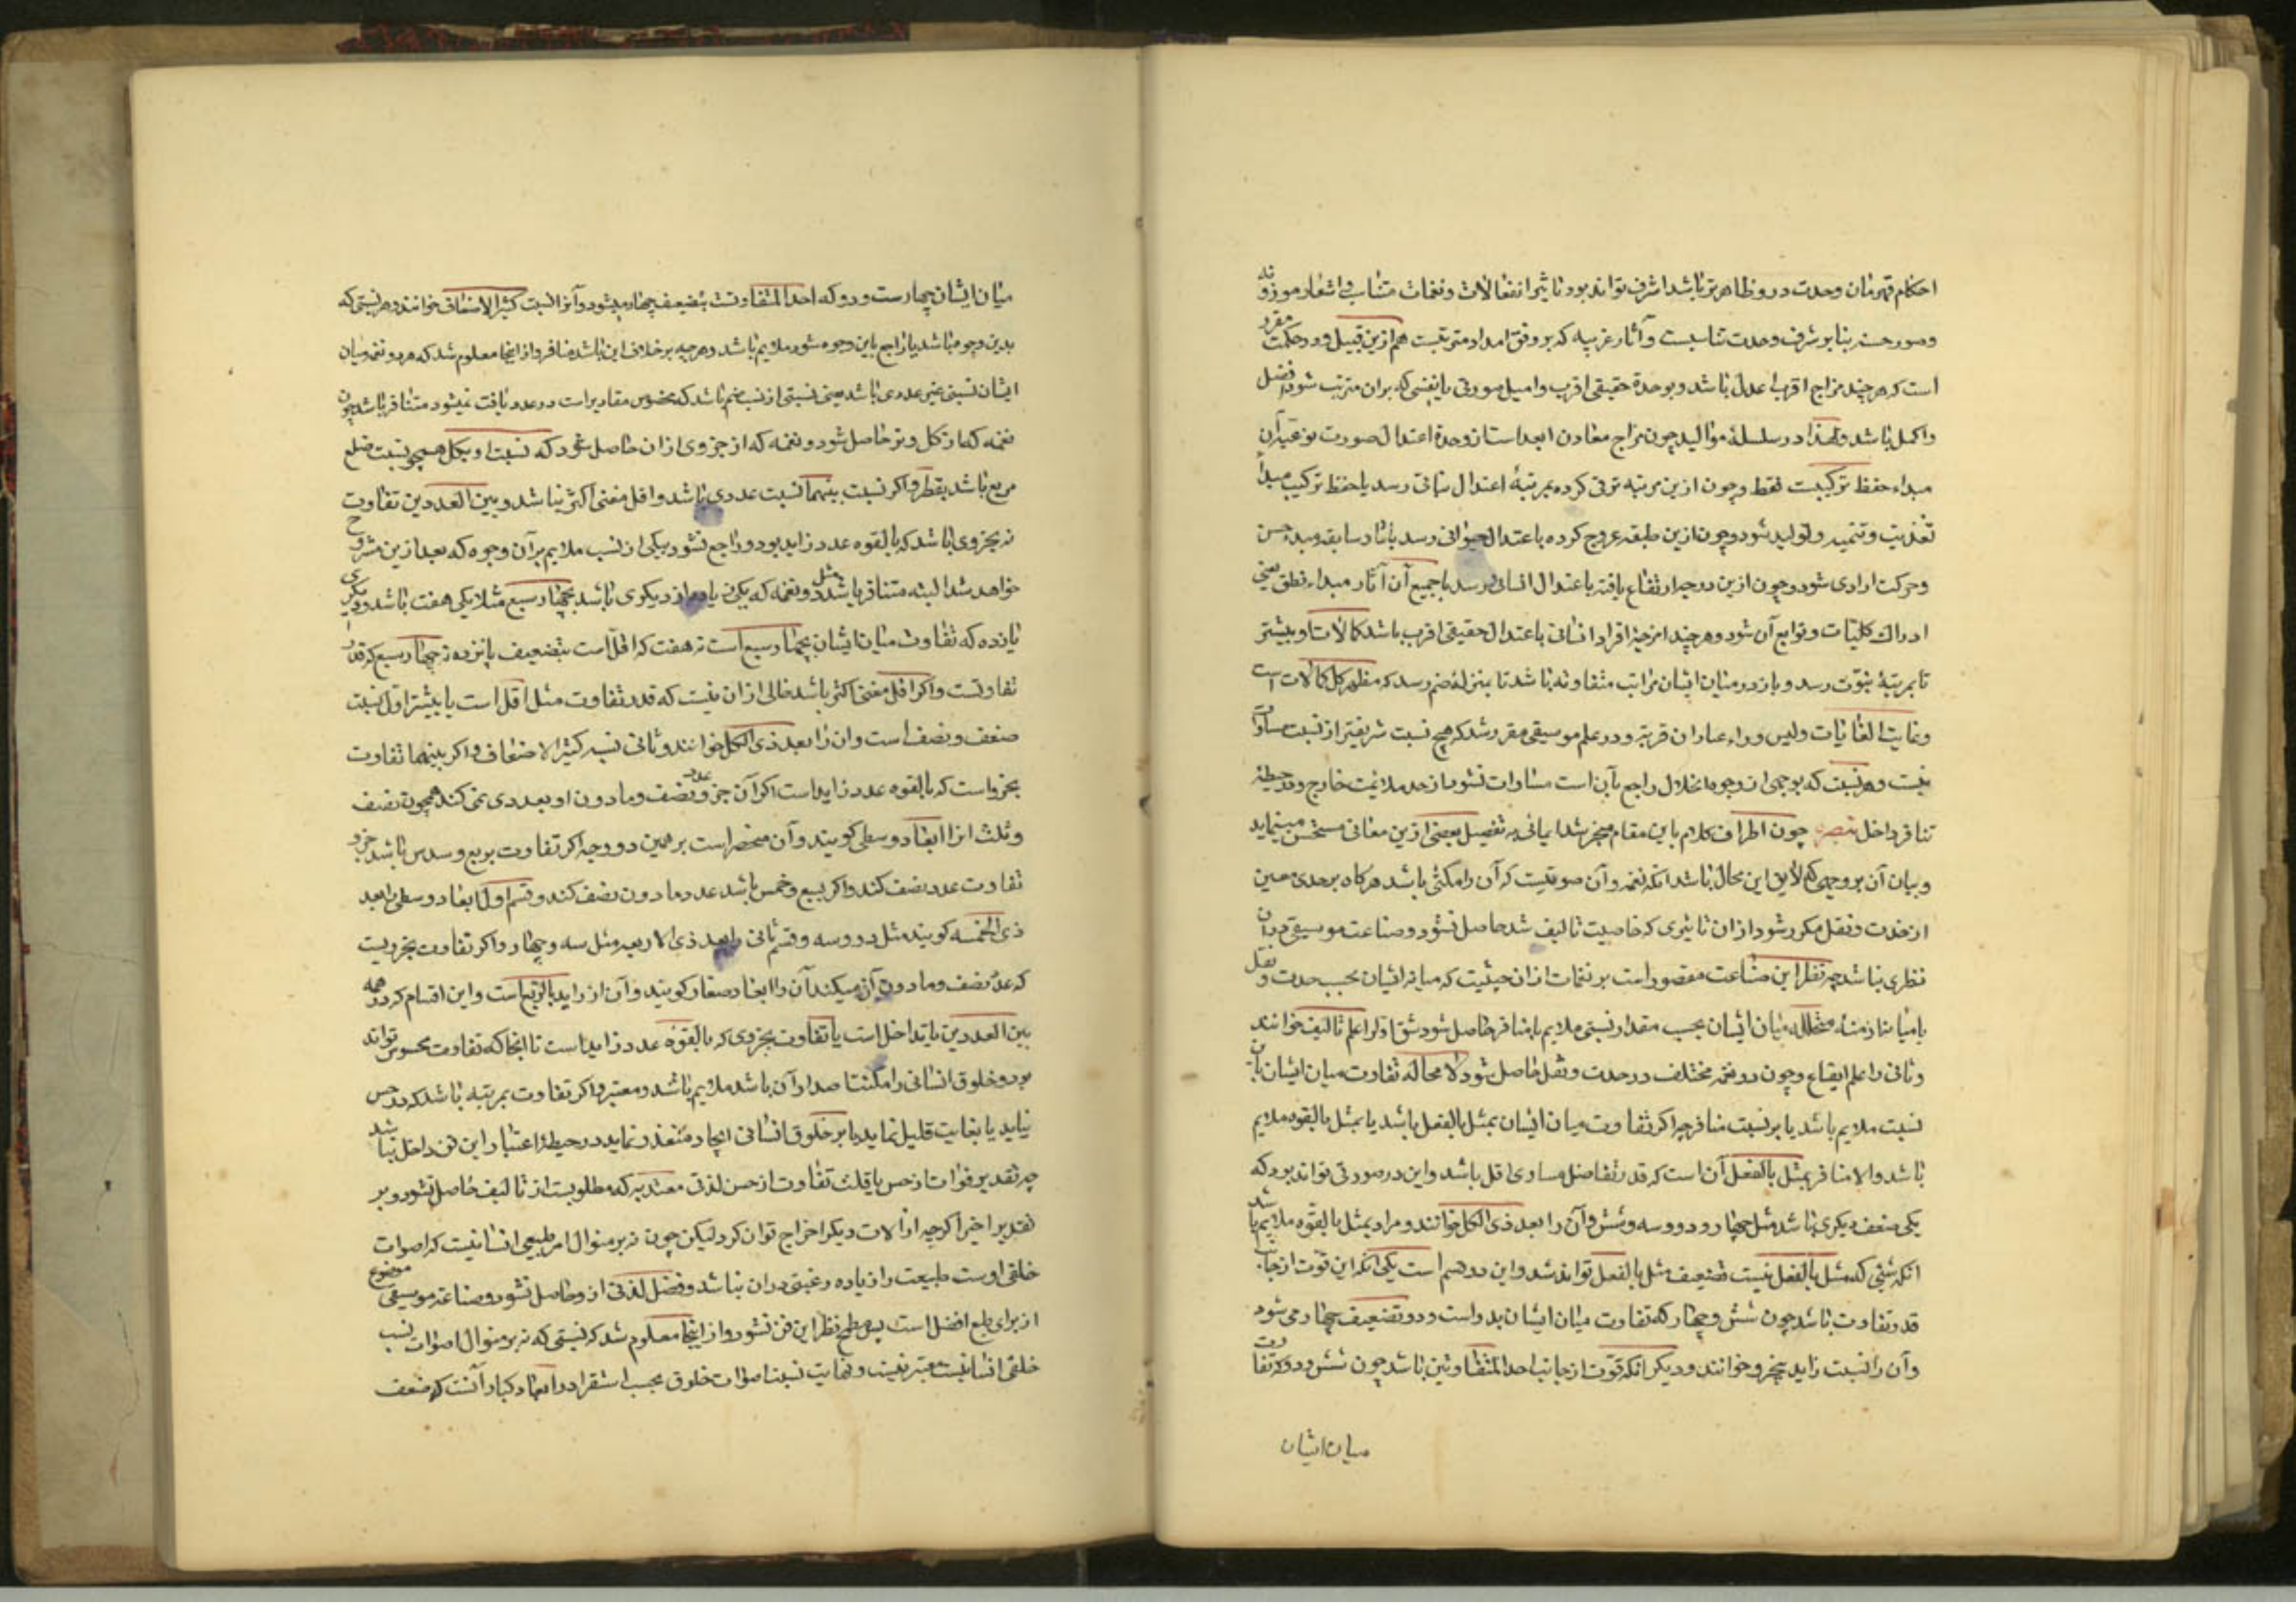 احکام قهرمان وحدت درو ظاهرتر باشد اشرف تواند بود تاثیر انفعالات و نغمات متناسب و اشعار موزونه
و صور حسنه بنابر شرف وحدت تناسبست و آثار غریبه که بر وفق اعداد مترتبست هم ازین قبیل و در حکمت مقرر
است که هر چند مزاج اقرب باعدل باشد و بوحدة حقیقی اقرب و امیل صورتی یا نفسی که بران مترتب شود افضل
و اکمل باشد و لهذا در سلسلهٔ موالید چون مزاج معادن ابعد است از وحدة اعتدال صورت نوعیه آن
مبداء حفظ ترکیبست فقط و چون ازین مرتبه ترقی کرده بمرتبهٔ اعتدال نباتی رسد یا حفظ ترکیب مبدأ
تغذیت و تنمیه و تولید شود و چون ازین طبقه عروج کرده باعتدال حیوانی رسد بآثار سابقه مبدء حس
و حرکت ارادی شود و چون ازین درجه ارتفاع یافته باعتدال انسانی رسد با جمیع آن آثار مبداء نطق یعنی
ادراک کلیات و توابع آن شود و هر چند امزجهٔ افراد انسانی باعتدال حقیقی اقرب باشد کمالات او بیشتر
تا بمرتبهٔ نبوّت رسد و باز در میان ایشان مراتب متفاوته باشد تا بمنزلهٔ ختم رسد که مظهر کل کمالات است
و نهایت الغایات و لیس وراء عبادان قریة و در علم موسیقی مقرر شد که هیچ نسبت شریفتر از نسبت مساوات
نیست و هر نسبت که بوجهی از وجوه انحلال راجع بآن است مساوات نشود از حد ملایمت خارج و در حیطهٔ
تنافر داخل تبصره چون اطراف کلام باین مقام منجر شد ایمائی به تفصیل بعضی ازین معانی مستحسن مینماید
و بیان آن بر وجهی که لایق این محال باشد آنکه نغمه و آن صوتیست که آن را مکثی باشد هرگاه بر حدی معین
از حدت و ثقل مکرر شود از ان تاثیری که خاصیت تالیف شد حاصل نشود و صناعت موسیقی در آن
نظری نباشد چه نظر این صناعت مقصور است بر نغمات از ان حیثیت که میانه ایشان بحسب حدت و ثقل
یا میانه ازمنهٔ متخلله میان ایشان بحسب مقدار نسبتی ملایم یا منافر حاصل شود شق اول را علم تالیف خوانند
و ثانی را علم ایقاع و چون دو نغمه مختلف در حدت و ثقل حاصل شود لا محاله تفاوت میان ایشان یا بر
نسبت ملایم باشد یا بر نسبت منافر چه اگر تفاوت میان ایشان بمثل بالفعل باشد یا بمثل بالقوه ملایم
باشد و الا منافر بمثل بالفعل آن است که قدر تفاضل مساوی اقل باشد و این در صورتی تواند بود که
یکی ضعف دیگری باشد مثل چهار و دو و سه و شش و آن را بعد ذی الکل خوانند و مراد بمثل بالقوه ملایم باشد
آنکه شیئی که مثل بالفعل نیست تضعیف مثل بالفعل تواند شد و این دو قسم است یکی آنکه این قوت از جانب
قدر تفاوت باشد چون شش و چهار که تفاوت میان ایشان بدو است و دو تضعیف چهار می شود
و آن را نسبت زاید بجزو خوانند و دیگر آنکه قوّت از جانب احد المتفاوتین باشد چون شش و دو که تفاوت
میان ایشان
میان ایشان چهارست و دو که احد المتفاوتست بتضعیف چهار میشود و آنرا نسبت کثیر الاضعاف خوانند و هر نسبتی که
بدین وجوه باشد یا راجع باین وجوه شود ملایم باشد و هر چه برخلاف این باشد منافر و از اینجا معلوم شد که هر دو نغمه میان
ایشان نسبتی غیر عددی باشد یعنی نسبتی از نسب صم باشد که مخصوص مقادیر است در عدد یافت نمیشود متنافر باشد چون
نغمه که از کل وتر حاصل شود و نغمه که از جزوی از ان حاصل شود که نسبت او بکل همچو نسبت ضلع
مربع باشد بقطر و اگر نسبت بینهما نسبت عددی باشد و اقل مفنی اکثر نباشد و بین العددین تفاوت
نه بجزوی باشد که بالقوه عدد زاید بود و راجع نشود بیکی از نسب ملایم بر آن وجوه که بعد ازین مشروح
خواهد شد البته متنافر باشد مثل دو نغمه که یکی زیاده از دیگری باشد بچهار سبع مثلا یکی هفت باشد و دیگری
یازده که تفاوت میان ایشان بچهار سبع است نه هفت که اقل است بتضعیف یازده نه چهار سبع که قدر
تفاوتست و اگر اقل مفنی اکثر باشد خالی از ان نیست که قدر تفاوت مثل اقل است یا بیشتر اول نسبت
ضعف و نصف است و ان را بعد ذی الکل خوانند و ثانی نسبه کثیر الاضعاف و اگر بینهما تفاوت
بجزو است که بالقوه عدد زاید است اگر آن جزو عدد نصف و ما دون او بعددی نمی کند همچون نصف
و ثلث انرا ابعاد وسطی گویند و آن منحصر است بر همین دو وجه اگر تفاوت بربع و سدس باشد جزو
تفاوت عدد نصف کند و اگر بسبع و خمس باشد عدد ما دون نصف کند و قسم اول ابعاد وسطی را بعد
ذی الخمسه گویند مثل دو و سه و قسم ثانی را بعد ذی الاربعه مثل سه و چهار و اگر تفاوت بجزویست
که عد نصف و ما دون آن میکند آن را ابعاد صغار گویند و آن از زاید بالربع است و این اقسام که در همه
بین العددین یا تداخل است یا تفاوت بجزوی که بالقوه عدد زاید است تا آنجا که تفاوت محسوس تواند
بود و خلوق انسانی را مکنت اصدار آن باشد ملایم باشد و معتبر و اگر تفاوت بمرتبه باشد که در حس
نیاید یا بغایت قلیل نماید یا بر خلوق انسانی ایجاد متعذر نماید در حیطهٔ اعتبار این فن داخل نباشد
چه تقدیر فوات از حس یا قلت تفاوت از حسن لذتی معتد به که مطلوبست از تالیف حاصل نشود و بر
تقدیر اخیر اگرچه از آلات دیگر اخراج توان کرد لیکن چون نه بر منوال امر طبیعی انسانیست که اصوات
خلقی اوست طبیعت را زیاده رغبتی در ان نباشد و فضل لذتی از و حاصل نشود و صناعة موسیقی موضوع
از برای طبع افضل است پس مطمح نظر این فن نشود و از اینجا معلوم شد که نسبتی که نه بر منوال اصوات نسب
خلقی انسانیست معتبر نیست و نهایت نسبت اصوات خلوق بحسب استقرا در ابعاد کبار آنست که ضعف